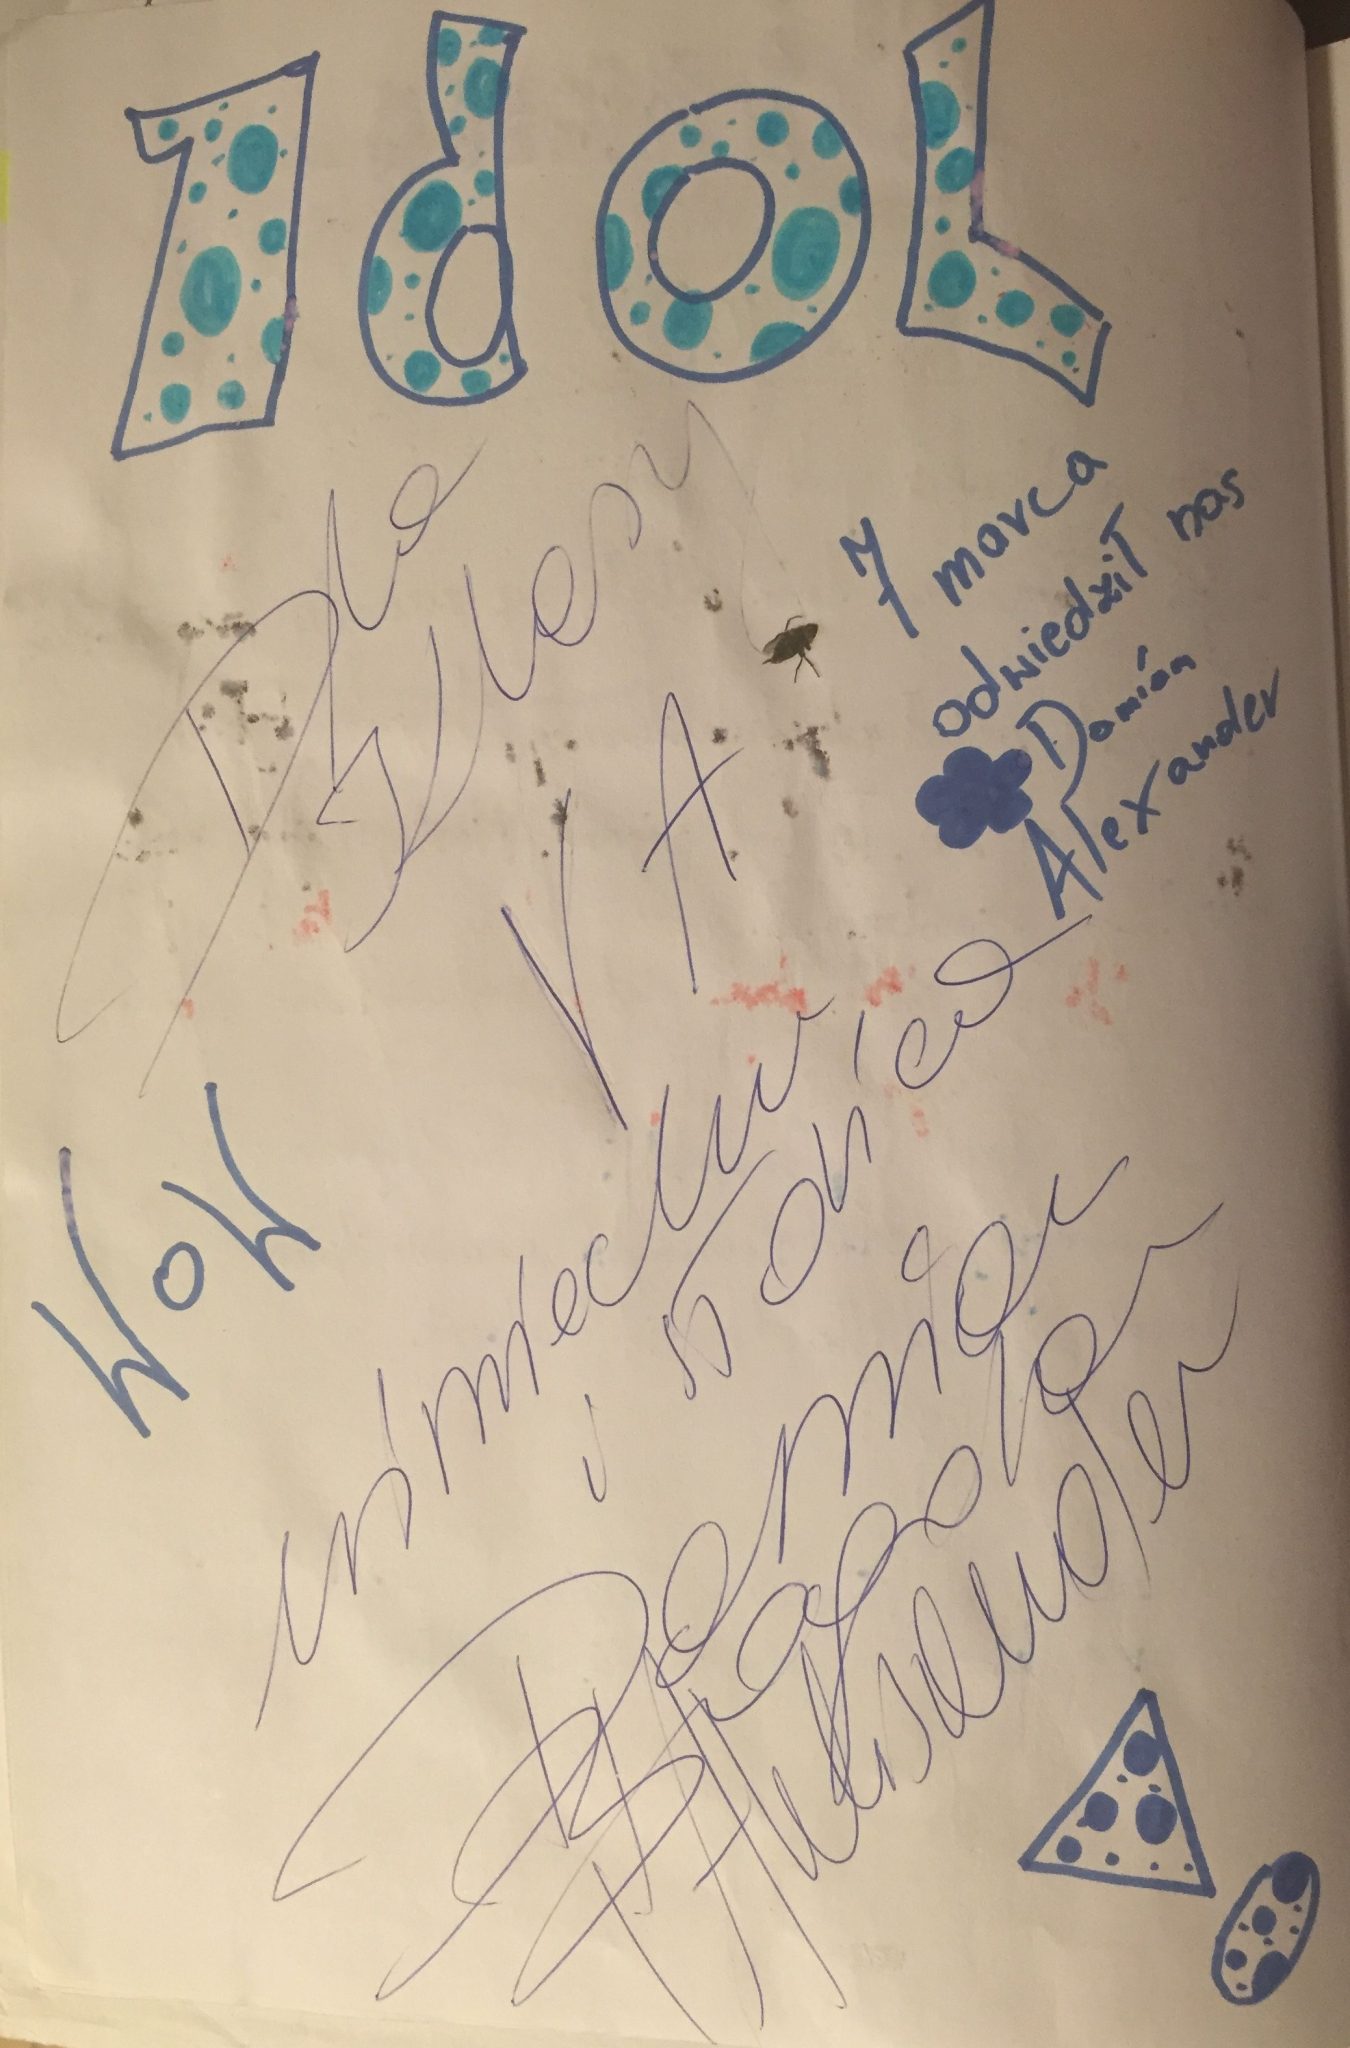 IdoL
7 marca
odwiedził nas
Damian
Alexander
Dla
Klasy
V A
uśmiechu
i słońca
Damian
Aleksander
WoW